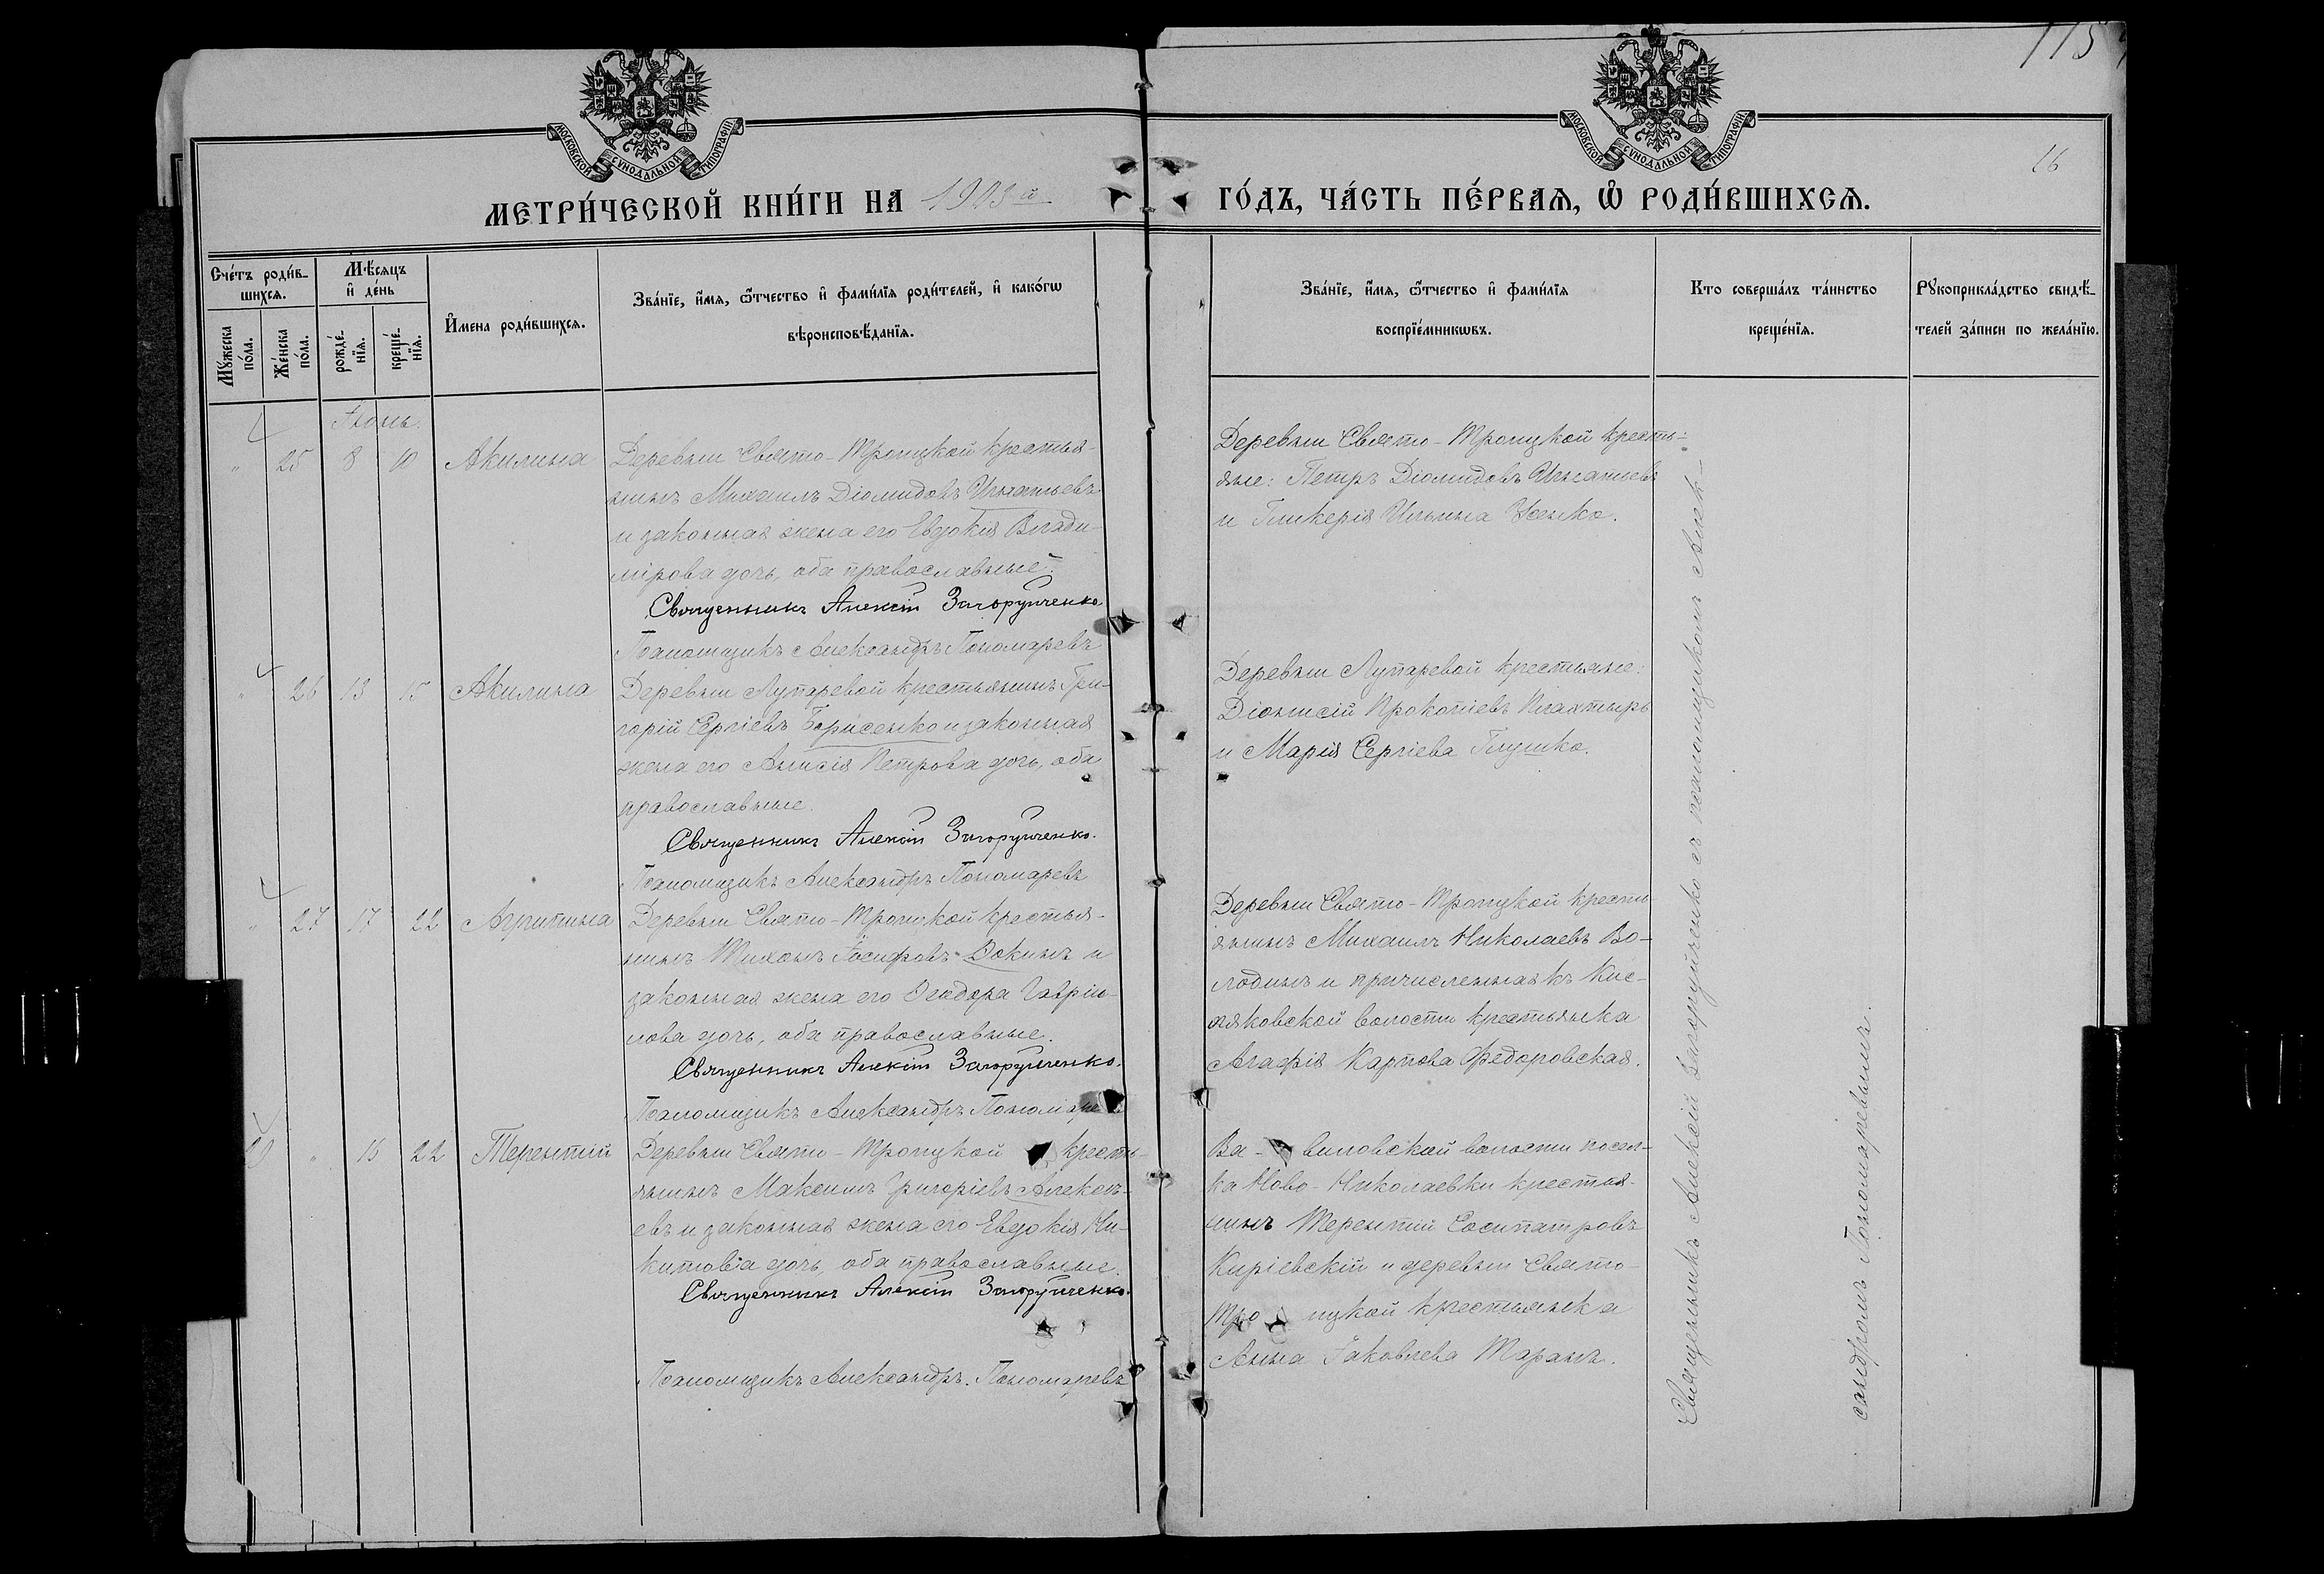 115
МОСКОВСКОЙ СѴНОДАЛЬНОЙ ТИПОГРАФІИ
МОСКОВСКОЙ СѴНОДАЛЬНОЙ ТИПОГРАФІИ
16
МЕТРИ́ЧЕСКОЙ КНИ́ГИ НА 1903й ГО́ДЪ, ЧА́СТЬ ПЕ́РВАѦ, Ѽ РОДИ́ВШИХСѦ.
Сче́тъ роди́в-
шихсѧ.
Мѣ́сѧцъ
и҆ де́нь
Мꙋ́жеска
по́ла.
Же́нска
по́ла.
рожде́-
нїѧ.
креще́-
нїѧ.
И҆́мена роди́вшихсѧ.
Зва́нїе, и҆́мѧ, ѻ҆́тчество и҆ фами́лїѧ роди́телей, и҆ како́гѡ
вѣроисповѣ́данїѧ.
Зва́нїе, и҆́мѧ, ѻ҆́тчество и҆ фами́лїѧ
воспрїе́мникѡвъ.
Кто соверша́лъ та́инство
креще́нїѧ.
Рꙋкоприкла́дство свидѣ́-
телей за́писи по жела́нїю.
Іюнь.
" 25 8 10 Акилина
Деревни Свято-Троицкой крестья-
нинъ Михаилъ Діомидовъ Игнатьевъ
и законная жена его Евдокія Влади-
мірова дочь, оба православные.
Священникъ Алексій Загоруйченко
Псаломщикъ Александръ Пономаревъ
Деревни Свято-Троицкой кресть-
яне: Петръ Діомидовъ Игнатьевъ
и Гликерія Ильина Усенко.
" 26 13 15 Акилина
Деревни Лупаревой крестьянинъ Гри-
горій Сергіевъ Борисенко и законная
жена его Анисія Петрова дочь, оба
православные.
Священникъ Алексій Загоруйченко.
Псаломщикъ Александръ Пономаревъ
Деревни Лупаревой крестьяне:
Діонисій Прокопіевъ Плахтырь
и Марія Сергіева Глушко.
" 27 17 22 Агрипина
Деревни Свято-Троицкой крестья-
нинъ Тихонъ Іосифовъ Вокинъ и
законная жена его Ѳеодора Гаврии-
лова дочь, оба православные.
Священникъ Алексій Загоруйченко.
Псаломщикъ Александръ Пономаре
Деревни Свято-Троицкой кресть-
янинъ Михаилъ Николаевъ Во-
лодинъ и причисленная къ Кис-
ляковской волости крестьянка
Агафія Карпова Федоровская.
" 16 22 Терентій
Деревни Свято-Троицкой кресть-
янинъ Максимъ Григоріевъ Алексѣ-
евъ и законная жена его Евдокія Ни-
китовна дочь, оба православные.
Священникъ Алексій Загоруйченко.
Псаломщикъ Александръ Пономаревъ
Ва-виловской волости посел-
ка Ново-Николаевки крестья-
нинъ Терентій Сосипатровъ
Киріевскій и деревни Свято-
Троицкой крестьянка
Анна Іаковлева Таранъ.
Священникъ Алексій Загоруйченко съ псаломщикомъ Алек-
сандромъ Пономаревымъ.